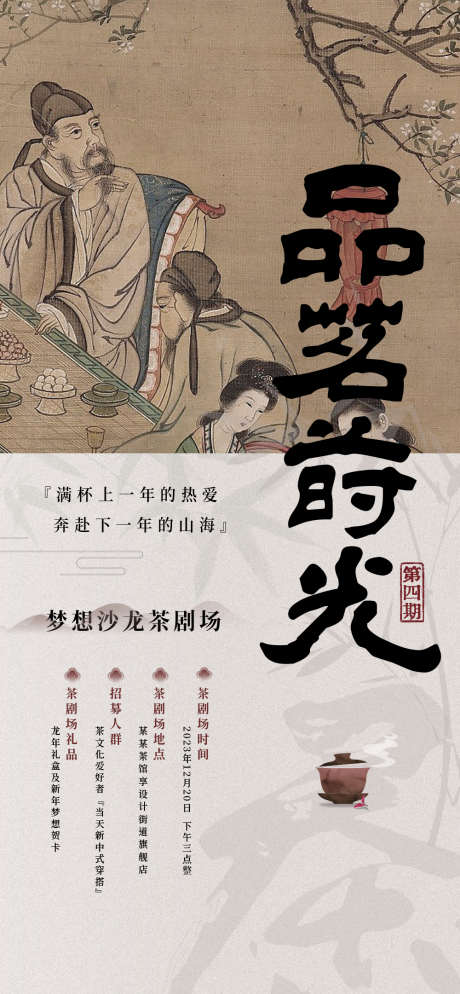 品茗时光
第四期
『满杯上一年的热爱
奔赴下一年的山海』
梦想沙龙茶剧场
茶剧场时间
2023年12月20日 下午三点整
茶剧场地点
某某茶馆享设计街道旗舰店
招募人群
茶文化爱好者『当天新中式穿搭』
茶剧场礼品
龙年礼盒及新年梦想贺卡
茶